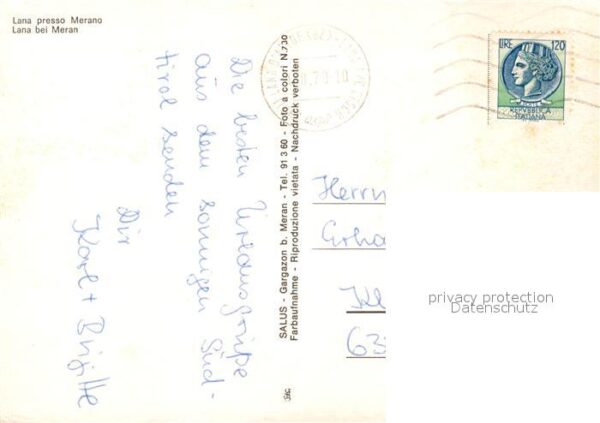 Lana presso Merano
Lana bei Meran
LIRE 120
REPUBBLICA
ITALIANA
Die besten Urlaubsgrüße
aus dem sonnigen Süd-
tirol senden
Dir
Karl + Brigitte
SALUS - Gargazon b. Meran - Tel. 91 3 60 - Foto a colori N.730
Farbaufnahme - Riproduzione vietata - Nachdruck verboten
Herrn
63
privacy protection
Datenschutz